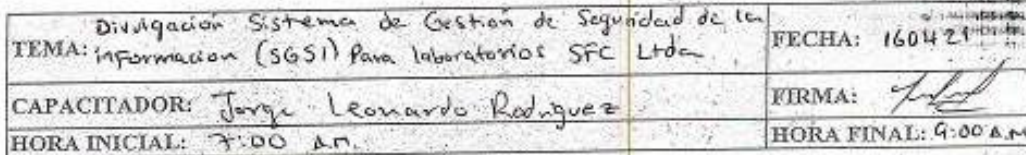 Divulgación Sistema de Gestión de Seguridad de la
TEMA: información (SGSI) Para laboratorios SFC Ltda
FECHA: 160421
CAPACITADOR: Jorge Leonardo Rodriguez
FIRMA:
HORA INICIAL: 7:00 A.M.
HORA FINAL: 9:00 A.M